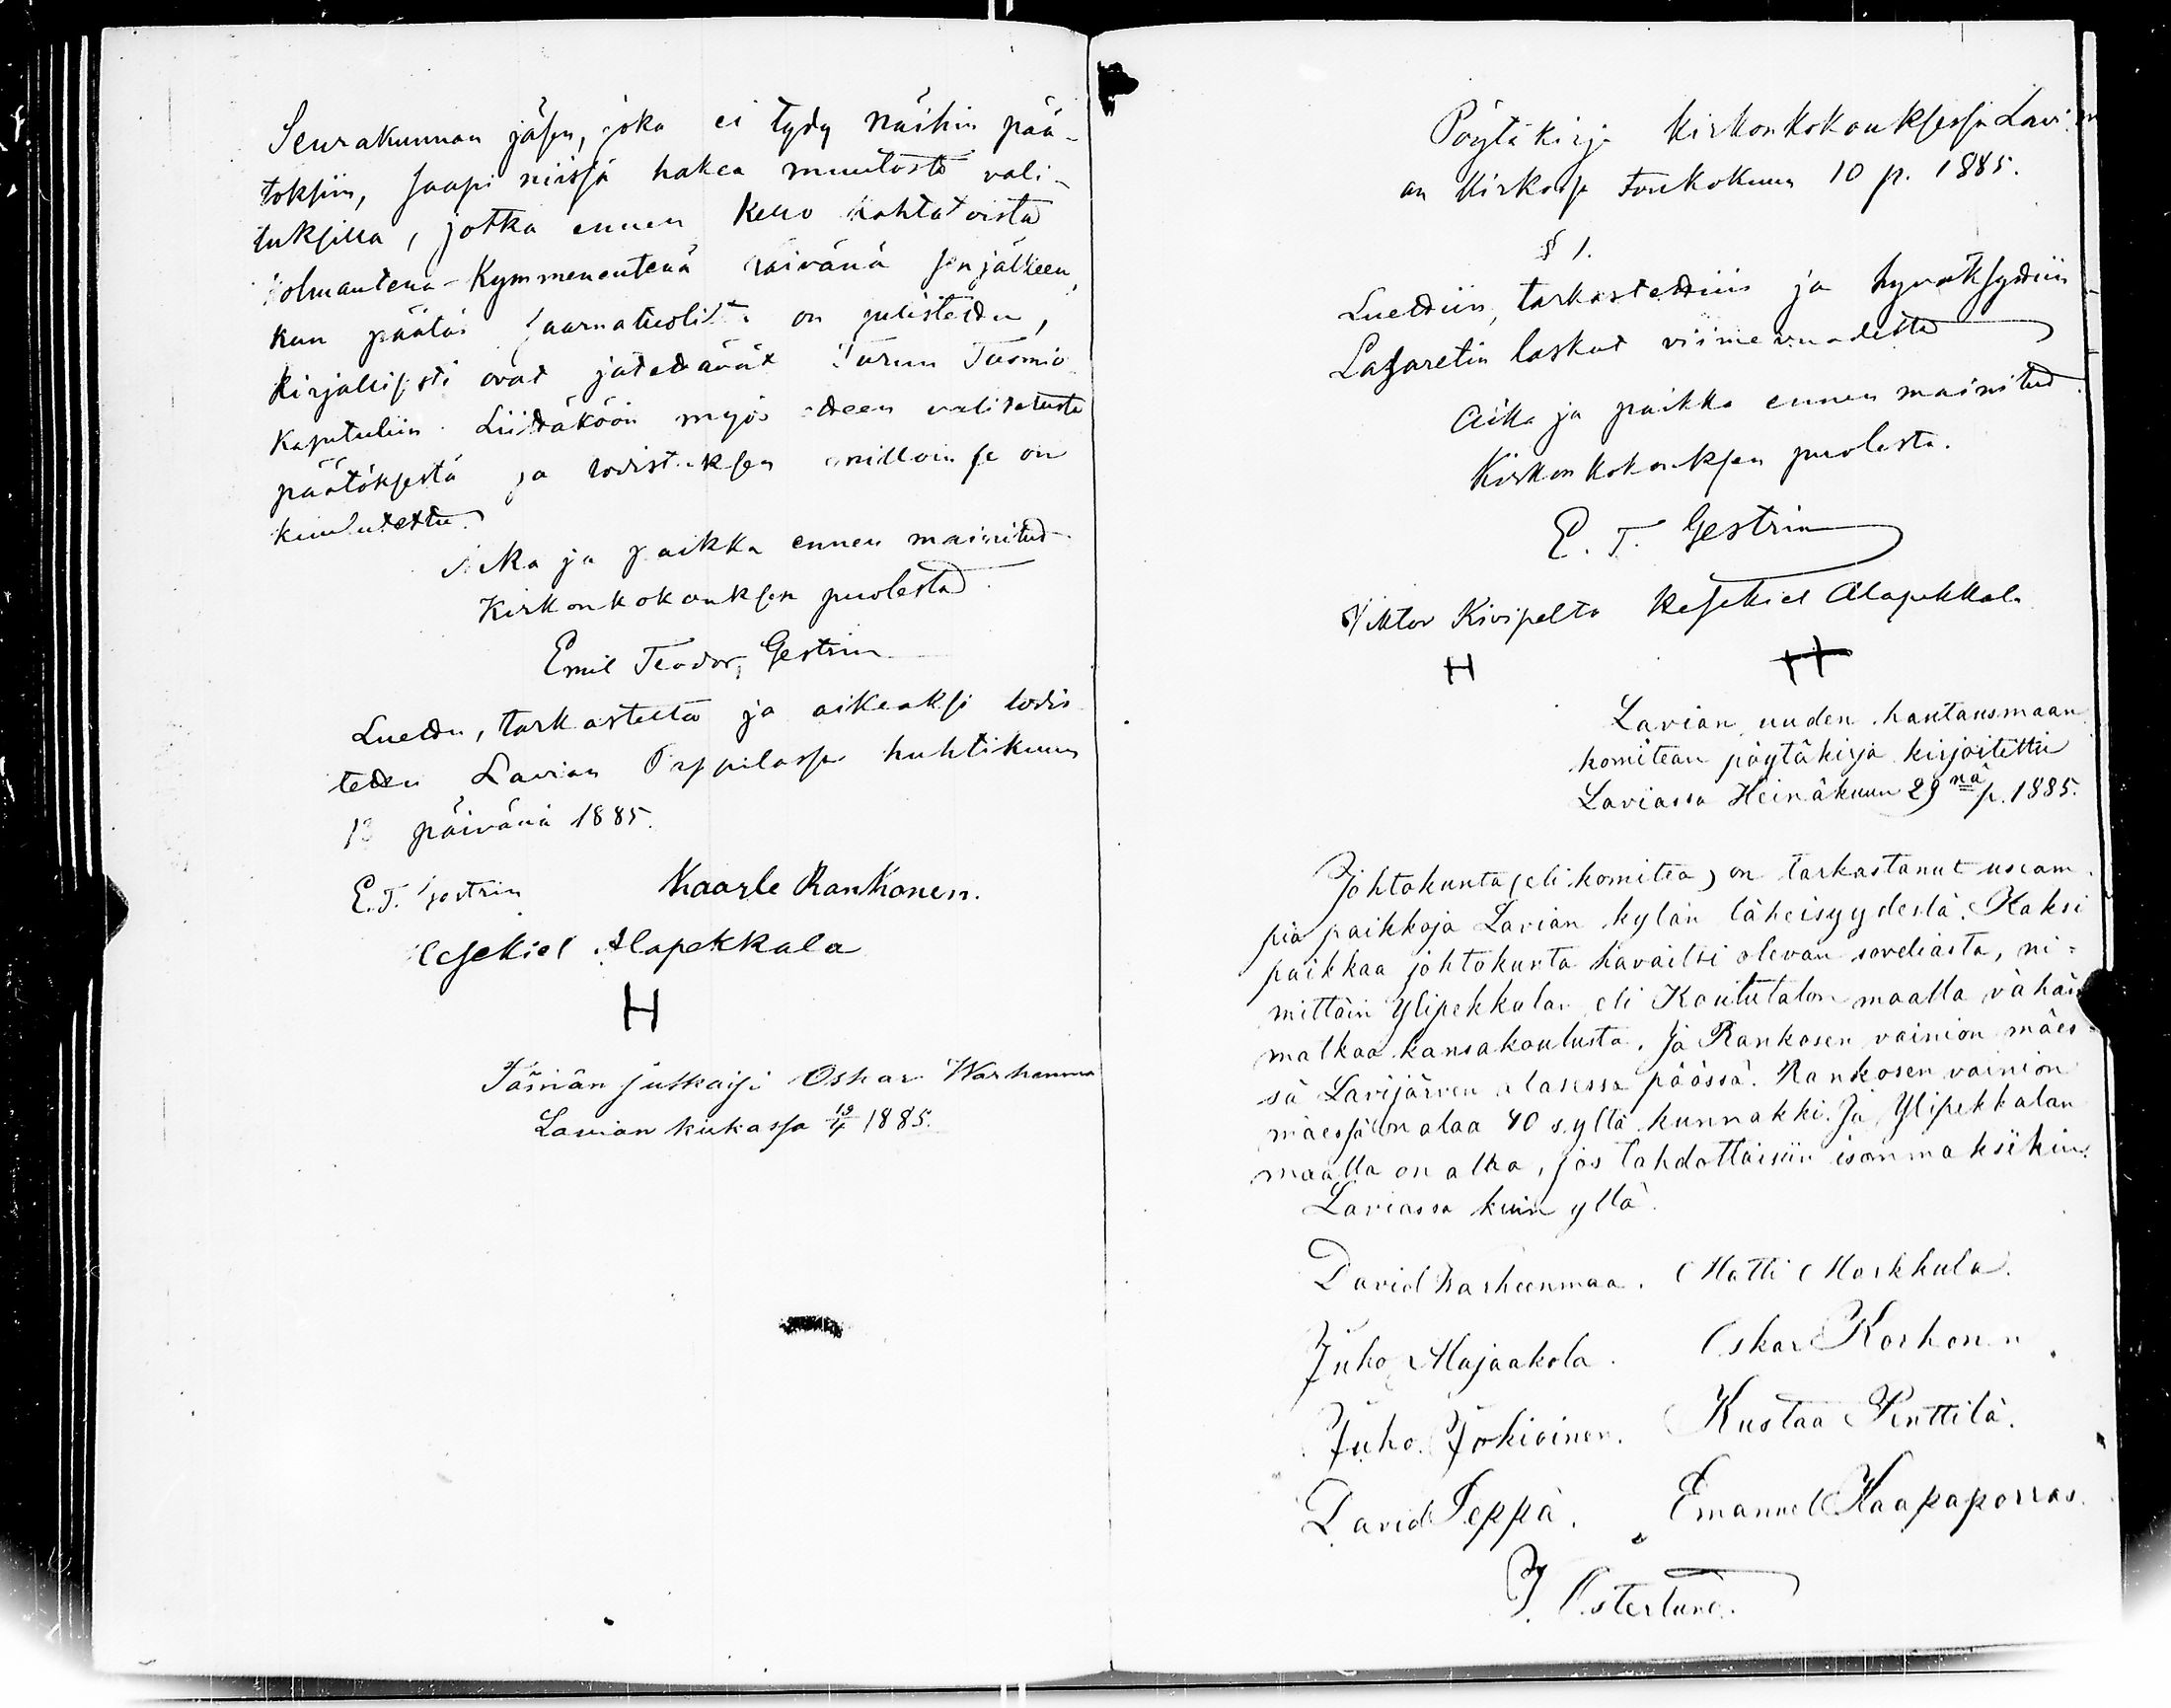 Seurakunnan jäsen, joka ei tydy näihin pää-
töksiin, saapi niissä hakea muutosta vali-
tuksilla, jotka ennen kello kahtatoista
kolmantena-kymmenentenä päivänä sen jälkeen,
kun päätös saarnatuolista on julistettu,
kirjallisesti ovat jätettävät Turun Tuomio
kapituliin. Liittäköön myös otteen valitetusta
päätöksestä ja todistuksen milloin se on
kuulutettu.
Aika ja paikka ennen mainitud.
Kirkonkokouksen puolesta
Emil Teodor Gestrin
Luettu, tarkastettu ja oikeaksi todis
tettu Lavian Pappilassa huhtikuun
13 päivänä 1885.
E. T. Gestrin Kaarle Rankonen.
Esekiel Alapekkala
H
Tämän julkaisi Oskar Warhenmaa
Lavian kirkossa 19/4 1885.
Pöytäkirja kirkonkokouksessa Lavi
an kirkossa Toukokuun 10 p. 1885.
§ 1.
Luettiin, tarkastettiin ja hyväksyttiin
Lasaretin laskut viime vuodelta
Aika ja paikka ennen mainitud.
Kirkonkokouksen puolesta.
E. T. Gestrin
Viktor Kivipelto Esekiel Alapekkala
H H
Lavian uuden hautausmaan
komitean pöytäkirja kirjoitettu
Laviassa Heinäkuun 29 nä p. 1885.
Johtokunta (eli komitea) on tarkastanut useam
pia paikkoja Lavian kylän läheisyydestä. Kaksi
paikkaa johtokunta havaitsi olevan soveliasta, ni=
mittäin Ylipekkalan eli Koulutalon maalla vähän
matkaa kansakoulusta. Ja Rankosen vainion mäes=
sä Lavijärven alasessa päässä. Rankosen vainion
mäessä on alaa 40 syltä kunnakki. Ja Ylipekkalan
maalla on alaa, jos tahdottaisiin isommaksikin.
Laviassa kuin yllä.
David Warheenmaa. Matti Markkula.
Juho Majaakola. Oskar Korhonen
Juho Jokioinen. Kustaa Penttilä.
David Seppä. Emanuel Haapaporras.
J. Österlund.